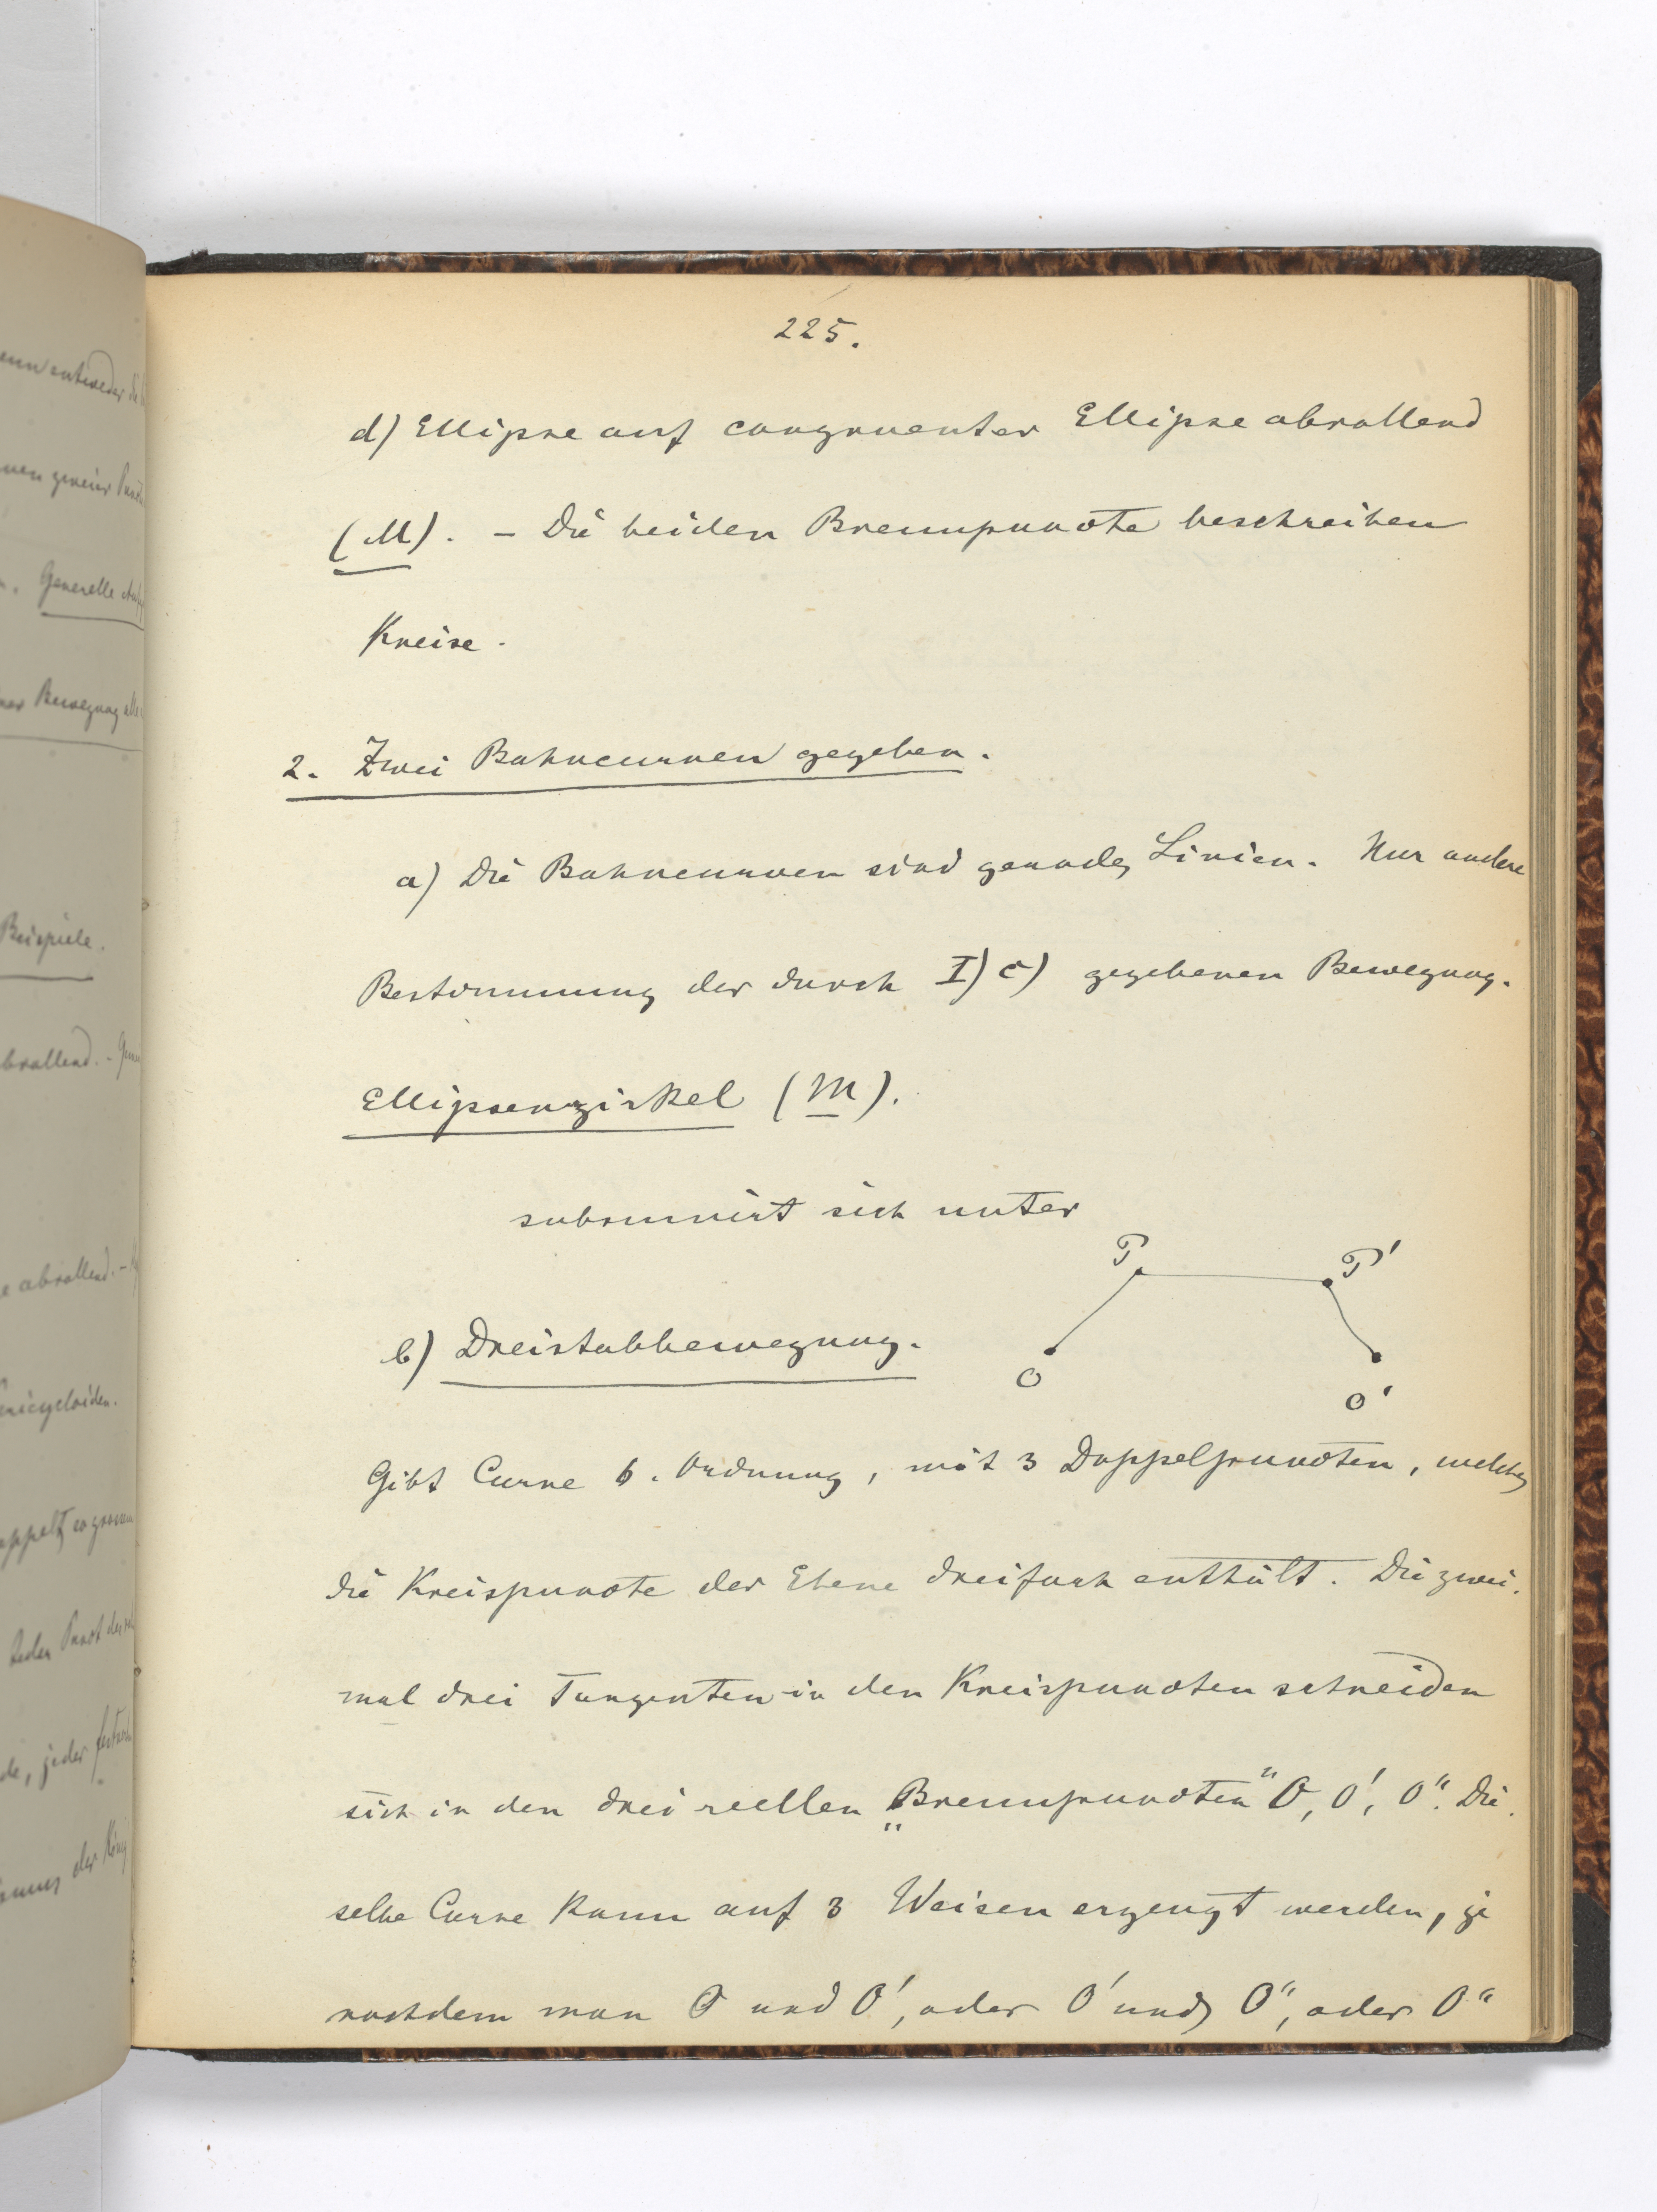 225.
d) Ellipse auf congruenter Ellipse abrollend
(M). – Die beiden Brennpuncte beschreiben
Kreise.
2. Zwei Bahncurven gegeben.
a) Die Bahncurven sind gerade Linien. Nur andere
Bestimmung der durch I) c) gegebenen Bewegung.
Ellipsenzirkel (M).
subsumirt sich unter
P P'
b) Dreistabbewegung.
O O'
Gibt Curve 6. Ordnung, mit 3 Doppelpuncten, welche
die Kreispuncte der Ebene dreifach enthält. Die zwei-
mal drei Tangenten in den Kreispuncten schneiden
sich in den drei reellen „Brennpuncten" O, O', O". Die-
selbe Curve kann auf 3 Weisen erzeugt werden, je
nachdem man O und O', oder O' und O", oder O"
entweder die
Generelle
Bewegung
Beispiele.
abrollend. –
abrollend. –
jeden Punct
de, jeder
der